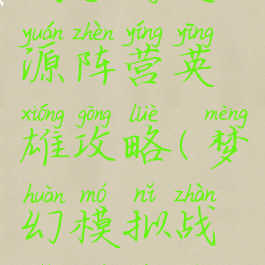 yuán zhèn yíng yīng
源阵营英
xióng gōng lüè mèng
雄攻略(梦
huàn mó nǐ zhàn
幻模拟战